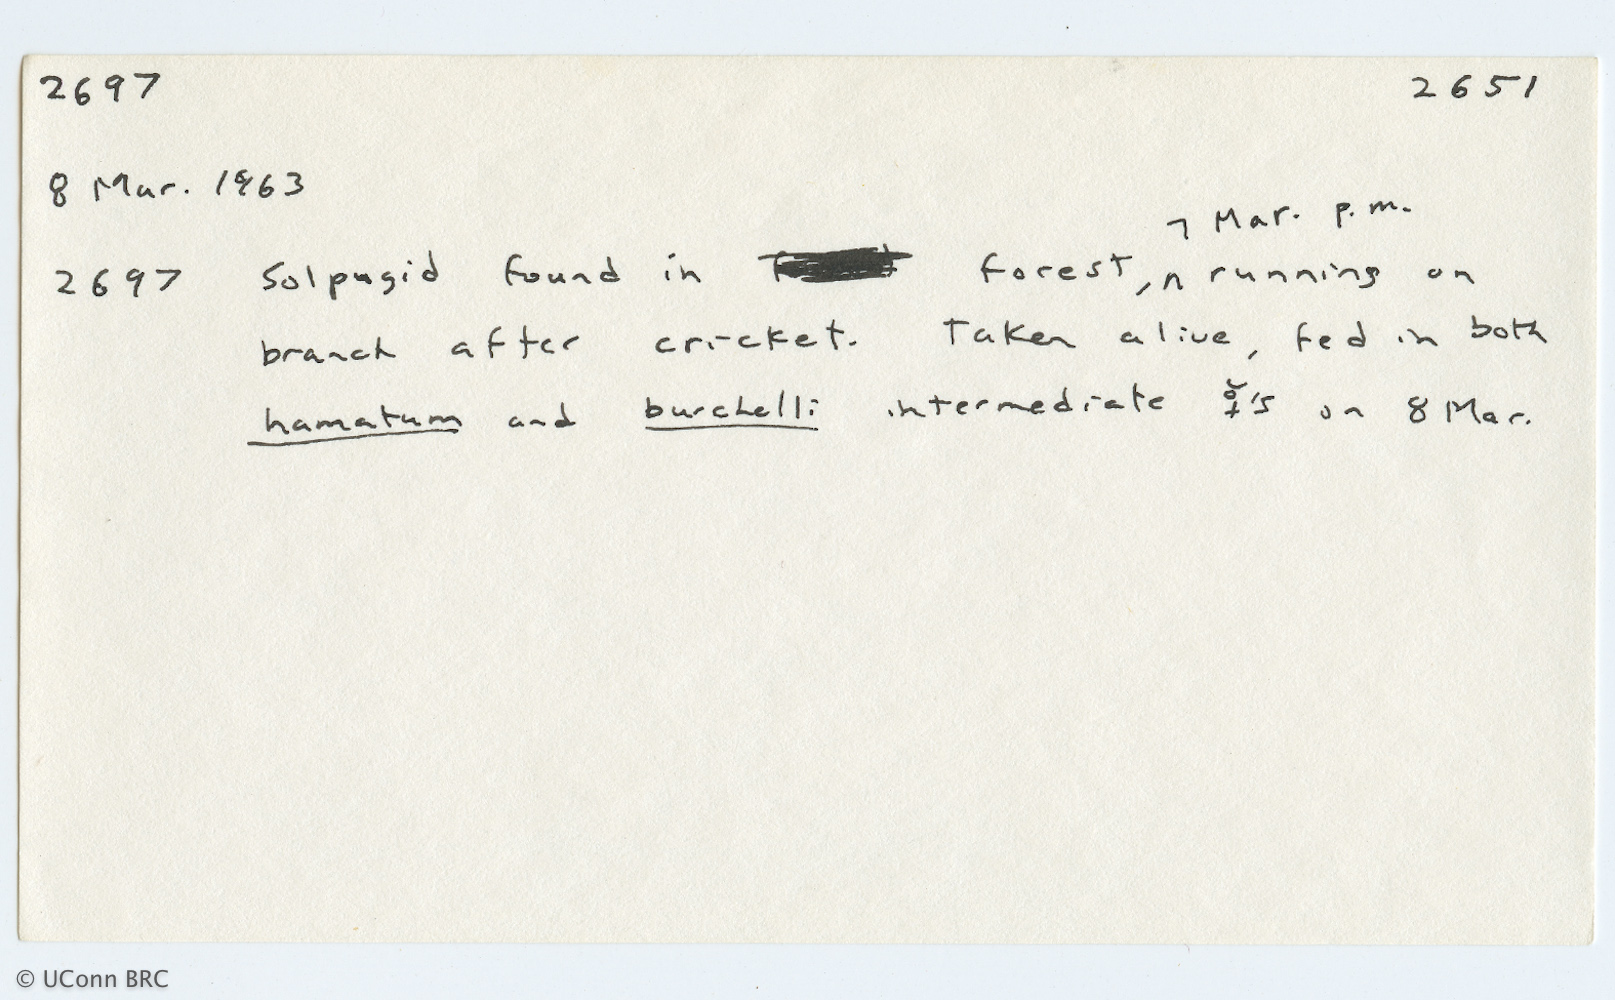 2697 2651
8 Mar. 1963
7 Mar. p.m.
2697 Solpugid found in forest, ∧ running on
branch after cricket. Taken alive, fed in both
hamatum and burchelli intermediate ☿'s on 8 Mar.
© UConn BRC